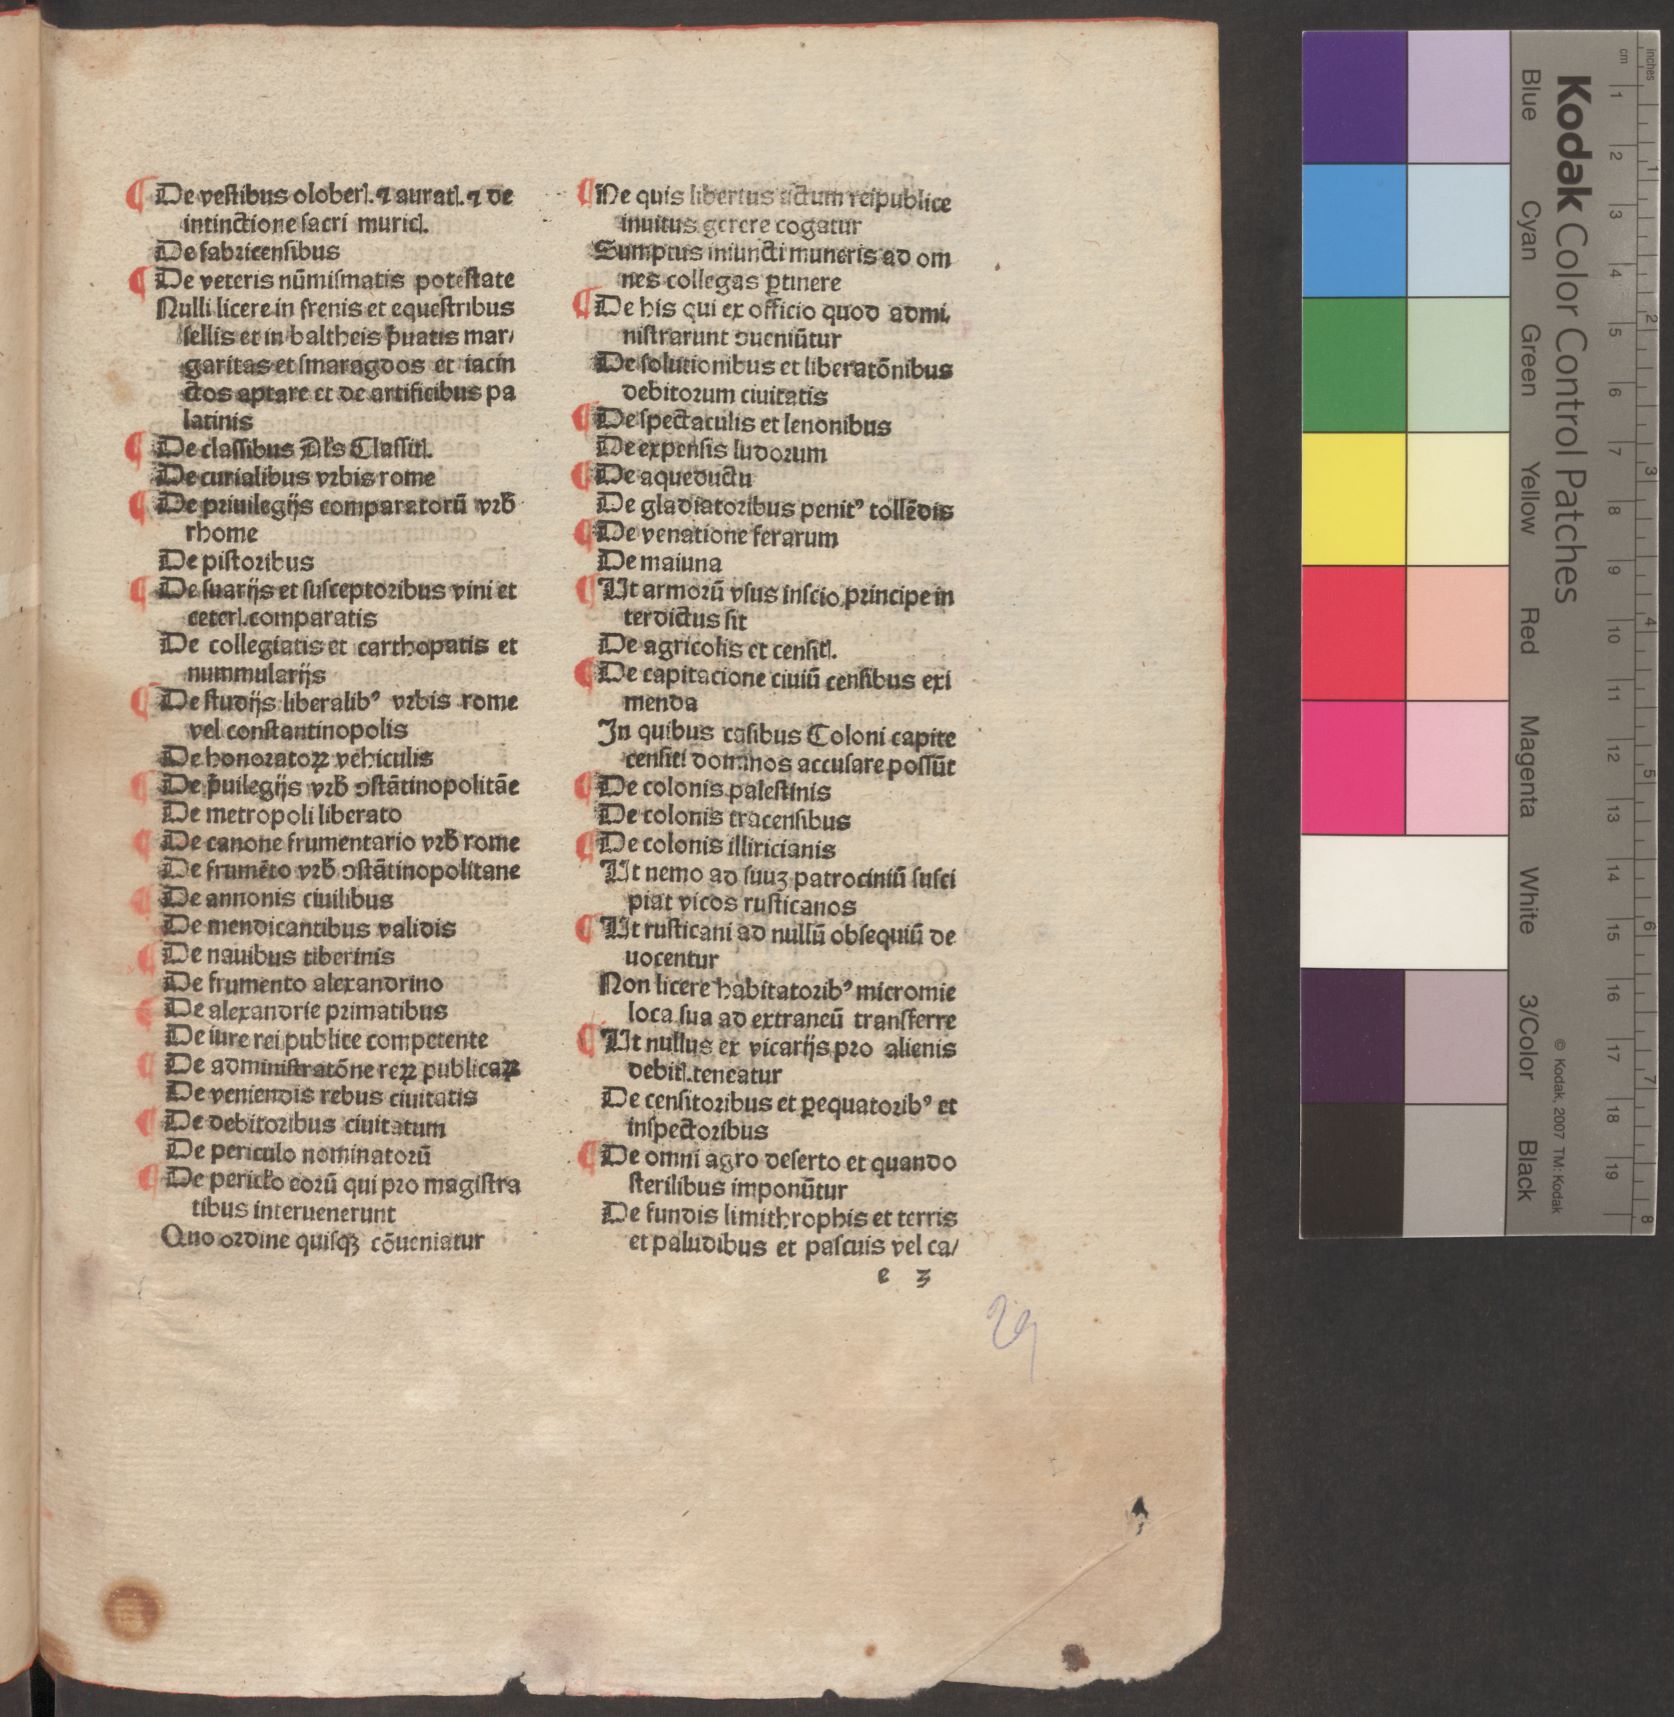 ¶ De vestibus olober̄l. ⁊ auratl̄. ⁊ de
intinctione sacri muricl̄.
De fabricensibus
¶ De veteris nūmismatis potestate
Nulli licere in frenis et equestribus
sellis et in baltheis p̄uatis mar/
garitas et smaragdos et iacin
ctos aptare et de artificibus pa
latinis
¶ De classibus Al's Classitl̄.
De curialibus vrbis rome
¶ De priuilegijs comparatorū vrb̄
rhome
De pistoribus
¶ De suarijs et susceptoribus vini et
ceterl̄. comparatis
De collegiatis et carthopatis et
nummularijs
¶ De studijs liberalibꝰ vrbis rome
vel constantinopolis
De honoratoꝝ vehiculis
¶ De p̄uilegijs vrb̄ ↄstātinopolitāe
De metropoli liberato
¶ De canone frumentario vrb̄ rome
De frumēto vrb̄ ↄstātinopolitane
¶ De annonis ciuilibus
De mendicantibus validis
¶ De nauibus tiberinis
De frumento alexandrino
¶ De alexandrie primatibus
De iure rei publice competente
¶ De administratōne reꝝ publicaꝝ
De veniendis rebus ciuitatis
¶ De debitoribus ciuitatum
De periculo nominatorū
¶ De pericl̄o eorū qui pro magistra
tibus interuenerunt
Quo ordine quisqꝫ cōueniatur
¶ Ne quis libertus actum reipublice
inuitus gerere cogatur
Sumptus iniuncti muneris ad om
nes collegas ꝑtinere
¶ De his qui ex officio quod admi,
nistrarunt ↄueniūtur
De solutionibus et liberatōnibus
debitorum ciuitatis
¶ De spectaculis et lenonibus
De expensis ludorum
¶ De aqueductu
De gladiatoribus penitꝰ tollēdis
¶ De venatione ferarum
De maiuna
¶ Ut armorū vsus inscio principe in
terdictus sit
De agricolis et censitl̄.
¶ De capitacione ciuiū censibus exi
menda
In quibus casibus Coloni capite
censiti dominos accusare possūt
¶ De colonis palestinis
De colonis tracensibus
¶ De colonis illiricianis
Ut nemo ad suuꝫ patrociniū susci
piat vicos rusticanos
¶ Ut rusticani ad nullū obsequiū de
uocentur
Non licere habitatoribꝰ micromie
loca sua ad extraneū transferre
¶ Ut nullus ex vicarijs pro alienis
debitl̄. teneatur
De censitoribus et ꝑequatoribꝰ et
inspectoribus
¶ De omni agro deserto et quando
sterilibus imponūtur
De fundis limithrophis et terris
et paludibus et pascuis vel ca/
e 3
29
Kodak Color Control Patches
Blue Cyan Green Yellow Red Magenta White 3/Color Black
© Kodak, 2007 TM: Kodak
cm 1 2 3 4 5 6 7 8 9 10 11 12 13 14 15 16 17 18 19
inches 1 2 3 4 5 6 7 8